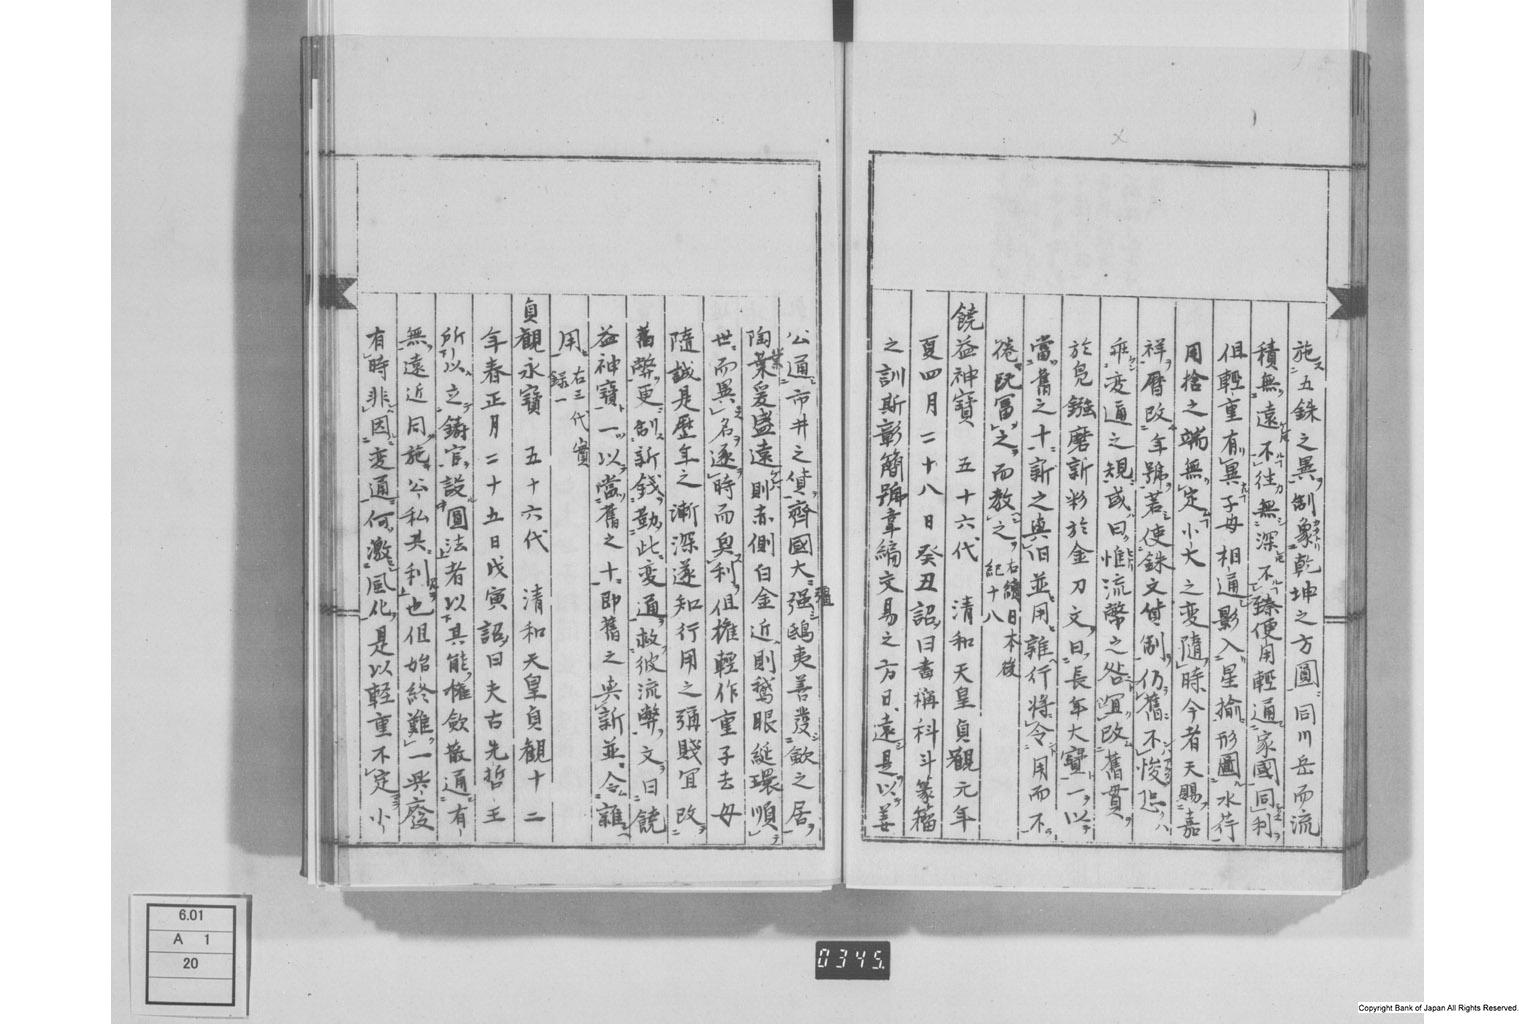 施五銖之異制象乾坤之方圓同川岳而流
積無遠不往無深不臻便用輕通家國同利
但輕重有異子母相通影入星揄形圖水荇
用捨之端無定小大之變隨時今者天賜嘉
祥曆改年號若使銖文舊制仍舊不悛恐
乖変通之規或曰惟流幣之咎冝改舊貫
於鳬鏹磨新彩於金刀文曰長年大寳一以
當舊之十新之與旧並用雖行将令用而不
倦既冨之而教之
右續日本後
紀十八
饒益神寳 五十六代 清和天皇貞觀元年
夏四月二十八日癸丑詔曰書稱科斗篆籀
之訓斯彰簡號韋編交易之方日遠是以姜
公通市井之貨齊國大强鴟夷善發歛之居
彊
陶葉爰盛遠則赤側白金近則鵝眼綖環順
業
世而異名逐時而興利但権輕作重子去母
隨誠是歴年之漸深遂知行用之彌賤冝改
舊幣更制新錢勤此変通救彼流弊文曰饒
益神寶一以當舊之十即舊之與新並令雜
用
右三代實
録一
貞觀永寳 五十六代 清和天皇貞觀十二
年春正月二十五日戊寅詔曰夫古先哲王
所以之鋳官設圓法者以其能権歛散通有
無遠近同施公私共利也但始終難一興廢
有時非因変通何激風化是以軽重不定小
6.01
A 1
20
0345
Copyright Bank of Japan All Rights Reserved.